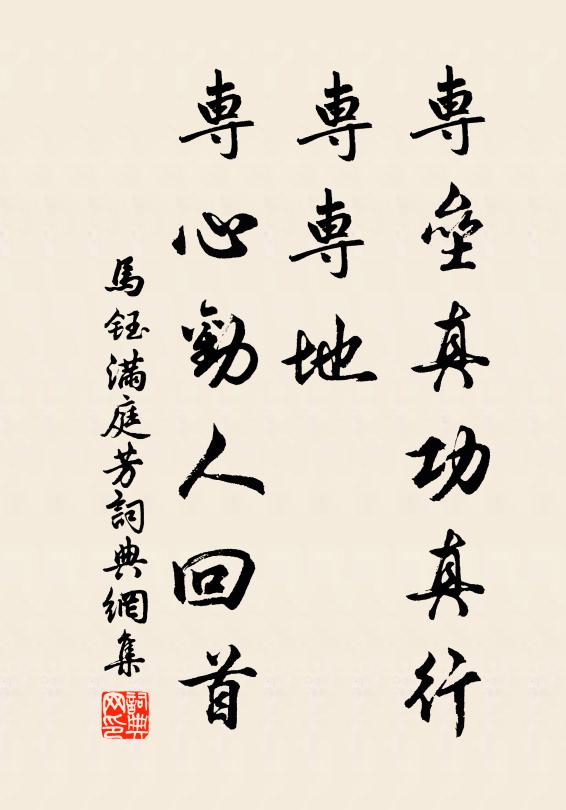 專壘真功真行
專專地
專心勸人回首
馬鈺滿庭芳詞典網集
詞典网印